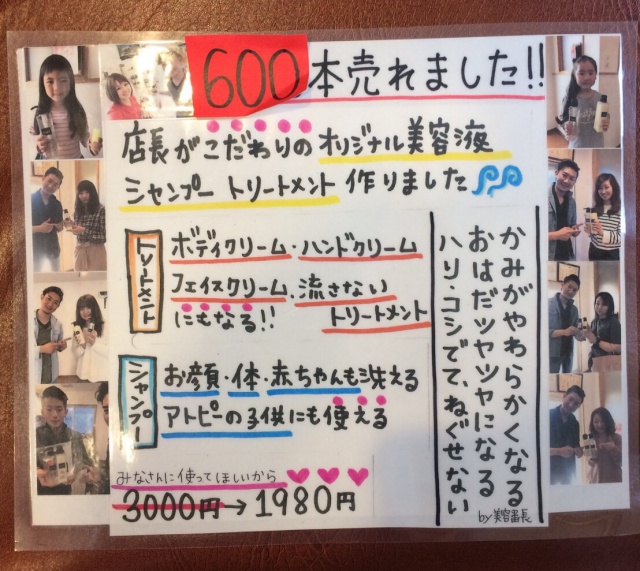 600本売れました!!
店長がこだわりのオリジナル美容液
シャンプー トリートメント 作りました
トリートメント
ボディクリーム・ハンドクリーム
フェイスクリーム、流さない
にもなる!! トリートメント
シャンプー
お顔・体・赤ちゃんも洗える
アトピーの子供にも使える
みなさんに使ってほしいから
3000円→1980円
かみがやわらかくなる
おはだツヤツヤになる
ハリ・コシでて、ねぐせない
by美容番長